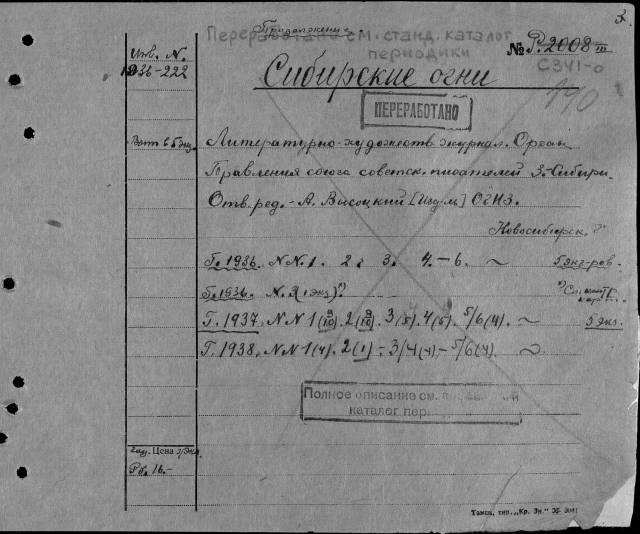 Продолжение.
Переработано см. станд. каталог
периодики
Инв. N.
1936-222
№ Р. 2008 III
С341-о
190
Сибирские огни
ПЕРЕРАБОТАНО
Литературно-художеств журнал. Орган
Правления союза советск. писателей З.-Сибири.
Отв. ред. - А. Высоцкий [Изд-м] ОГИЗ.
Новосибирск.
Г. 1936. NN. 1. 2. 3. 4.-6.
5 экз-ров.
Г. 1936. N.
Г. 1937. NN 1 2 3 4 5/6 (4).
5 экз.
Г. 1938. NN 1(4). 2(1) - 3/4 (4) - 5/6 (4).
Полное описание см.
каталог пер
Цена
Рб. 16.-
Томск, тип. „Кр. Зн."